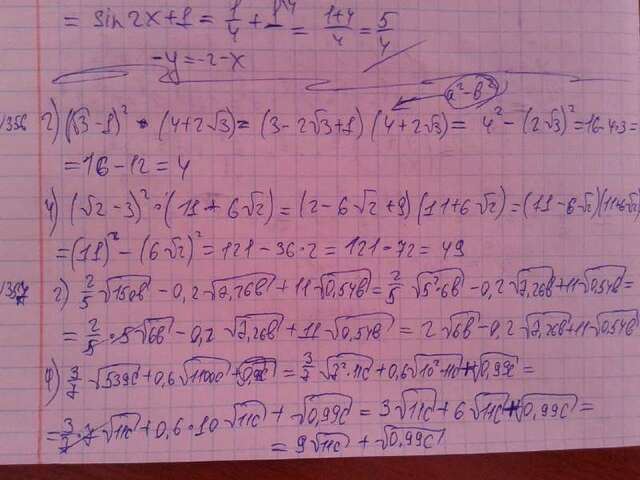 = sin 2x + 1 = 1/4 + 1^4 = (1+4)/4 = 5/4
-y = -2 - x
a² - b²
1356 2) (√3 - 1)² · (4 + 2√3) = (3 - 2√3 + 1) (4 + 2√3) = 4² - (2√3)² = 16 - 4·3 =
= 16 - 12 = 4
4) (√2 - 3)² · (11 + 6√2) = (2 - 6√2 + 9) (11 + 6√2) = (11 - 6√2)(11 + 6√2)
= (11)² - (6√2)² = 121 - 36·2 = 121 - 72 = 49
1357 2) 2/5 √150b - 0,2 √7,26b + 11 √0,54b = 2/5 √5²·6b - 0,2 √7,26b + 11 √0,54b =
= 2/5 · 5√6b - 0,2 √7,26b + 11 √0,54b = 2 √6b - 0,2 √7,26b + 11 √0,54b
4) 3/7 √539c + 0,6 √1100c + √0,99c = 3/7 √7²·11c + 0,6 √10²·11c + √0,99c =
= 3/7 · 7 √11c + 0,6 · 10 √11c + √0,99c = 3 √11c + 6 √11c + √0,99c =
= 9 √11c + √0,99c